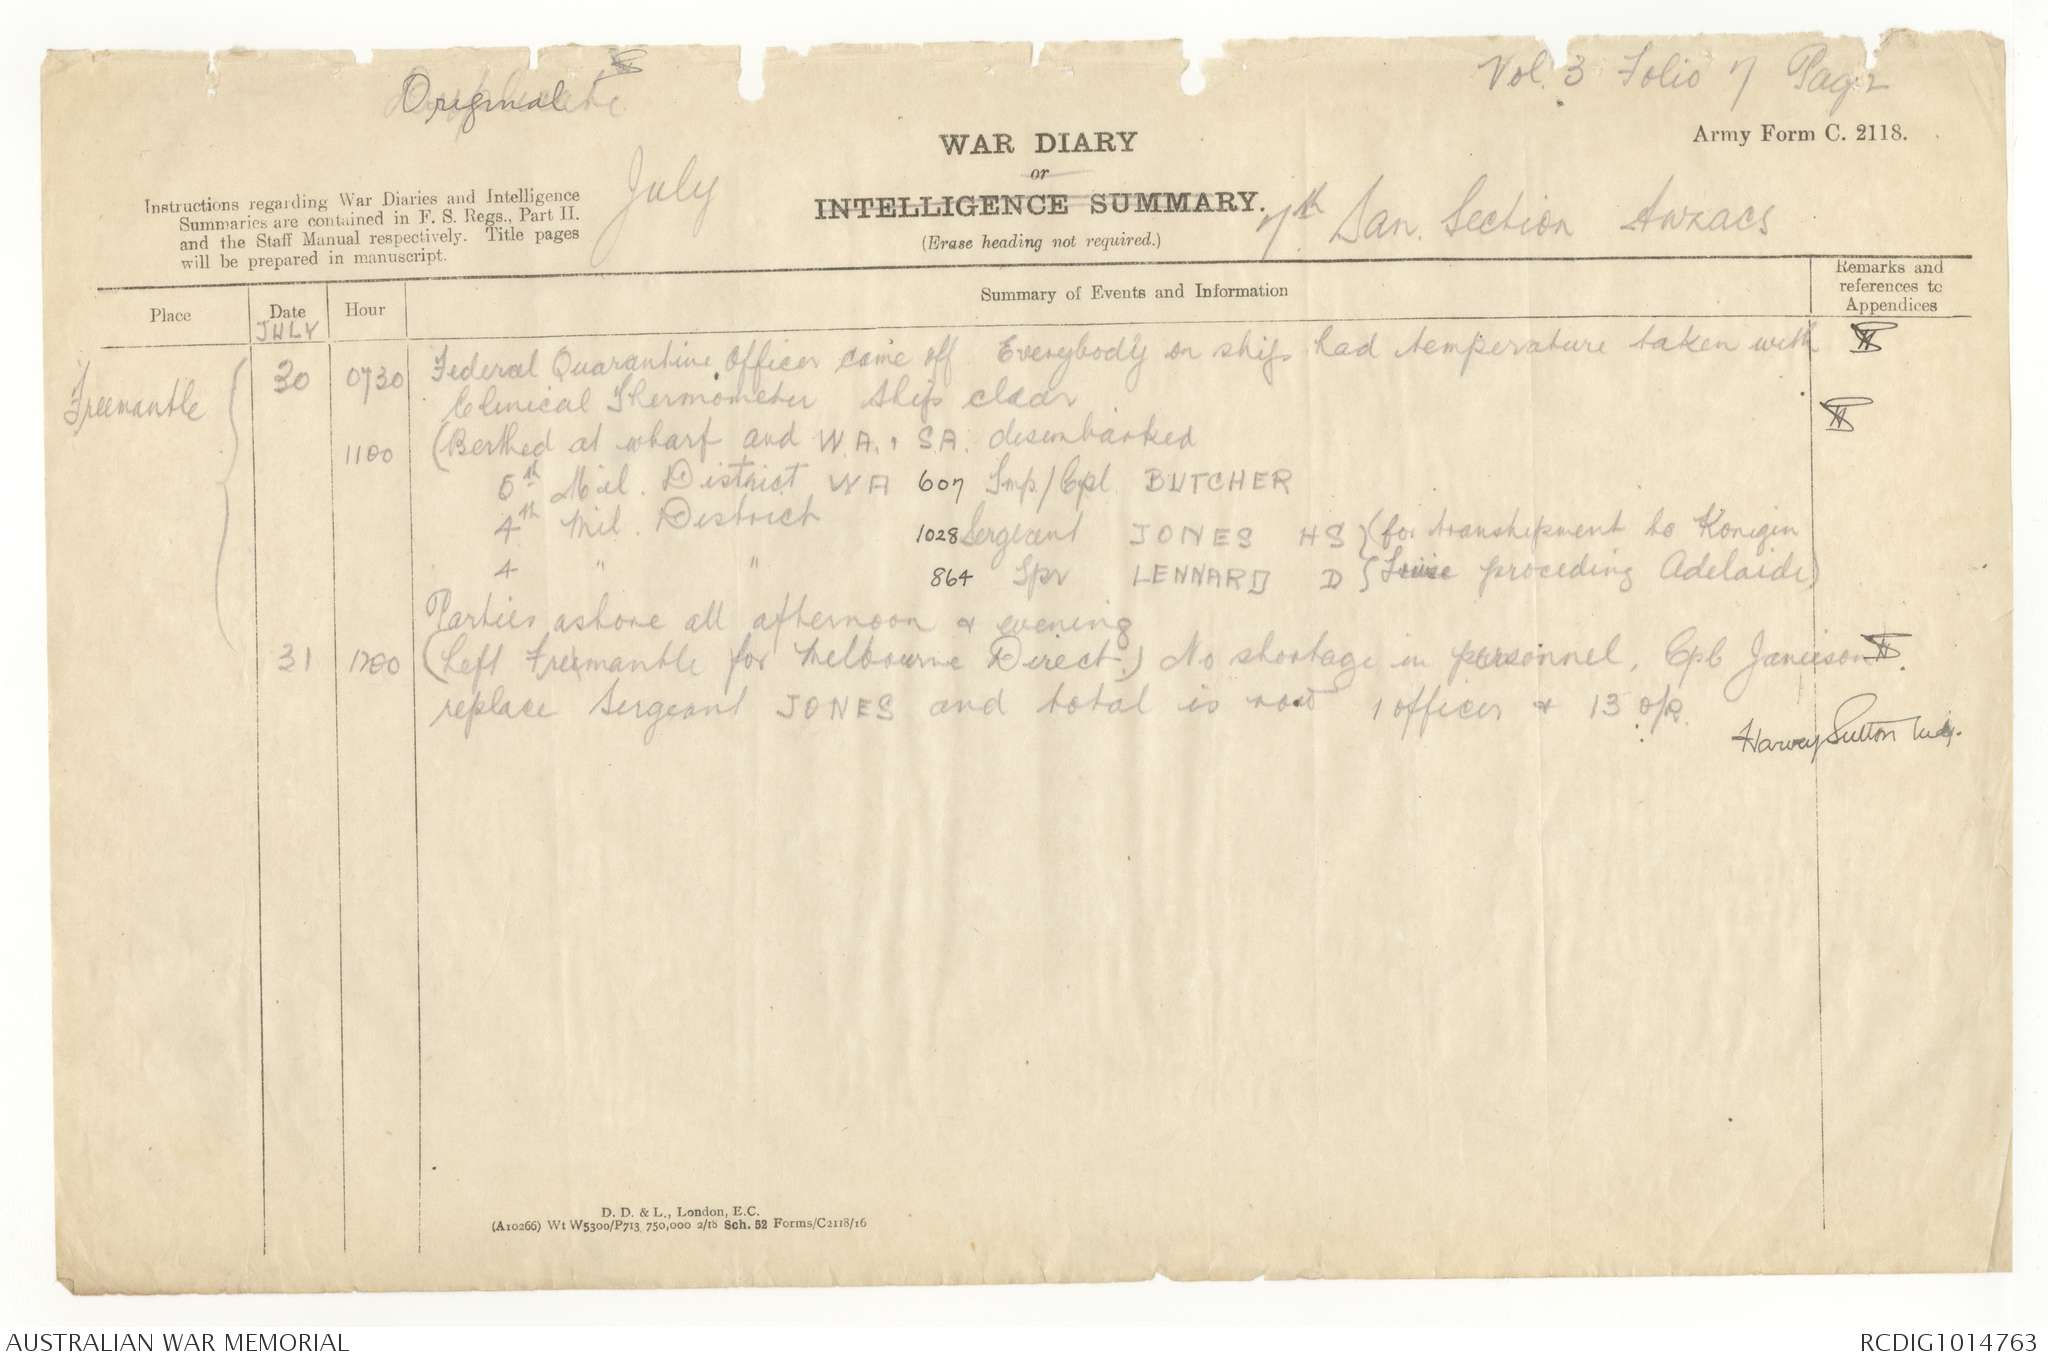 Original
Vol. 3 Folio 7 Page 2
Army Form C. 2118.
WAR DIARY
or
INTELLIGENCE SUMMARY.
(Erase heading not required.)
Instructions regarding War Diaries and Intelligence
Summaries are contained in F. S. Regs., Part II.
and the Staff Manual respectively. Title pages
will be prepared in manuscript.
July
7th San. Section Anzacs
Place
Date
JULY
Hour
Summary of Events and Information
Remarks and
references to
Appendices
Freemantle
30 0730 Federal Quarantine Officer came off Everybody on ship had temperature taken with
Clinical Thermometer Ship clear
1100 (Berthed at wharf and W.A. & S.A. disembarked
5th Mil. District WA 607 Tmp/Cpl BUTCHER
4th Mil. District 1028 Sergeant JONES HS (for transhipment to Konigin
4 " " 864 Spr LENNARD D Luise proceding Adelaide)
Parties ashore all afternoon & evening
31 1700 (Left Freemantle for Melbourne Direct.) No shortage in personnel, Cpl Janieson
replace Sergeant JONES and total is now 1 officer & 13 o/R.
Harvey Sutton Maj.
D. D. & L., London, E.C.
(A10266) Wt W5300/P713 750,000 2/18 Sch. 52 Forms/C2118/16
AUSTRALIAN WAR MEMORIAL
RCDIG1014763